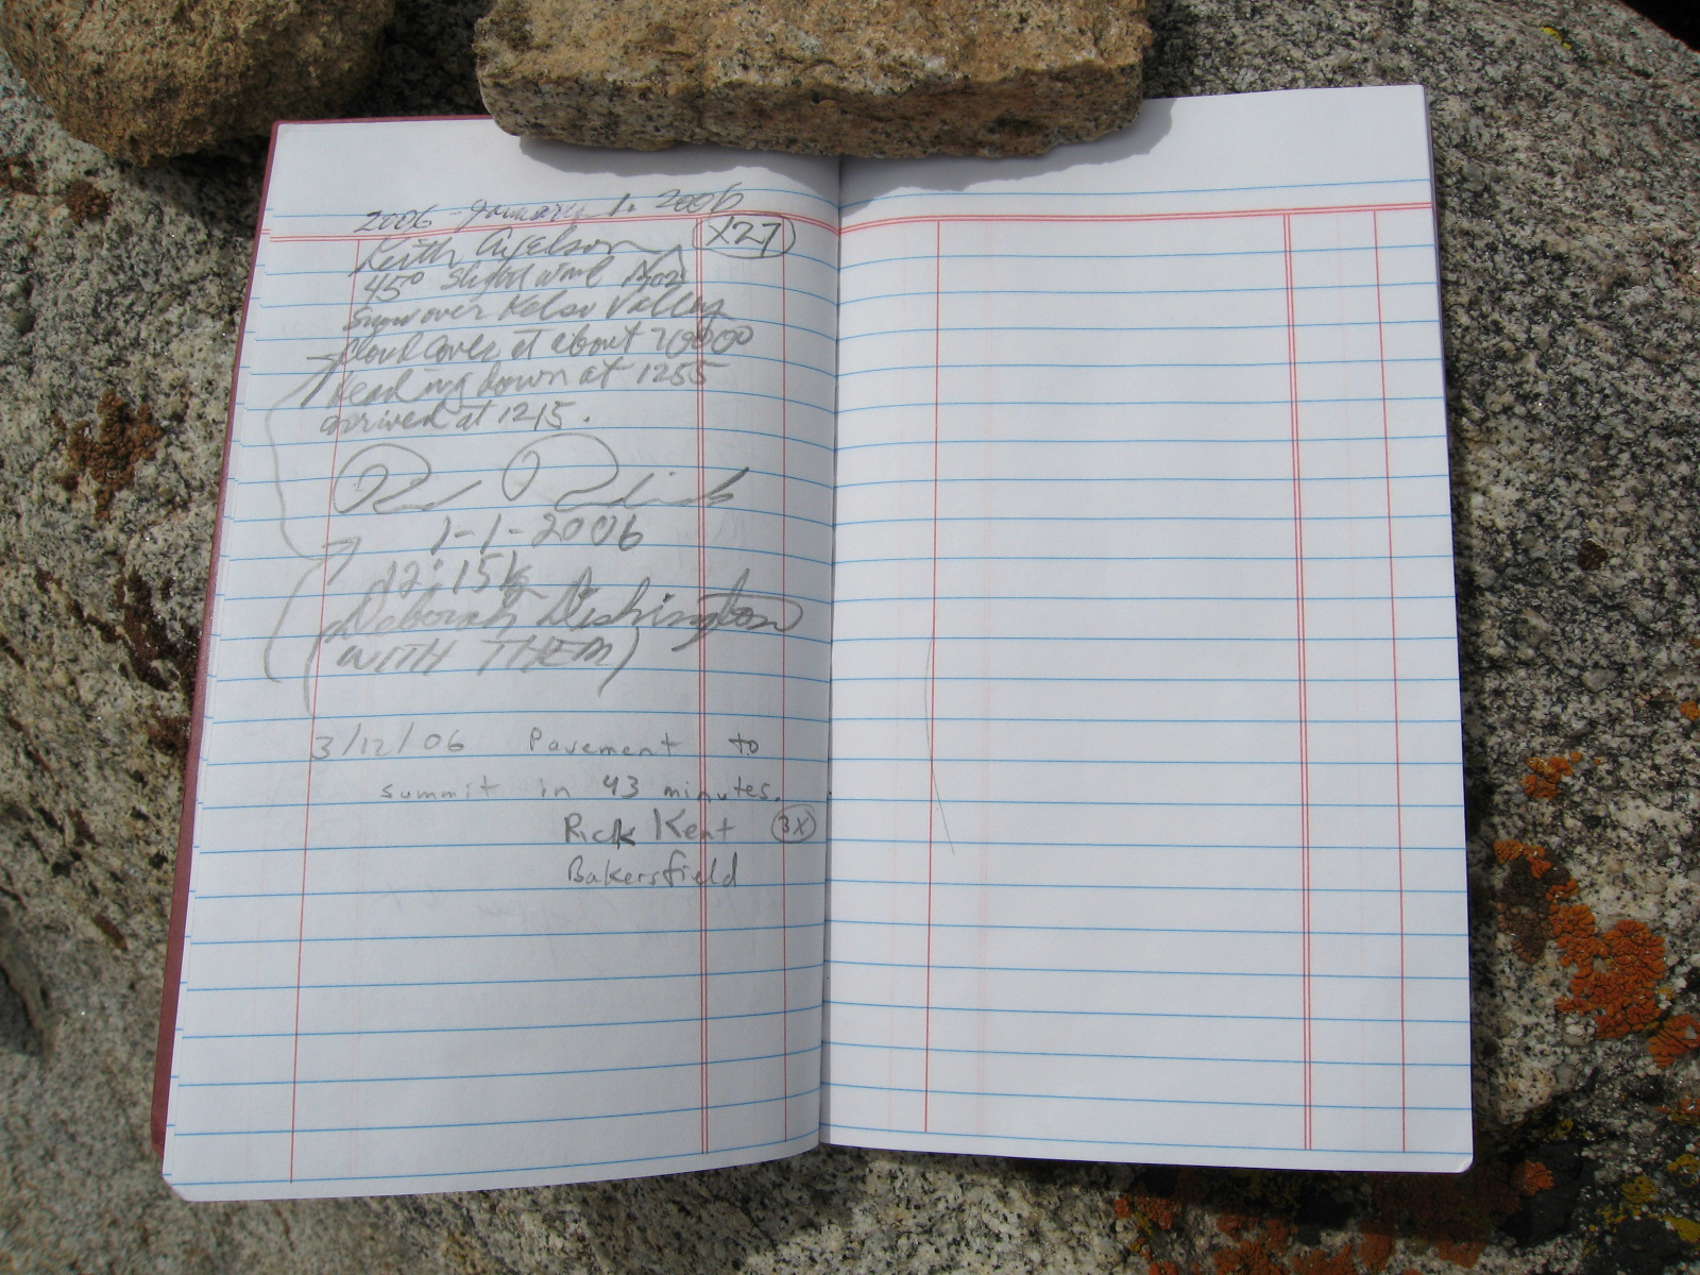 2006 - January 1. 2006
Keith Axelson X27
45° Slight wind
Snow over Kelso Valley
Cloud cover at about 20000
heading down at 1255
arrived at 1215.
1-1-2006
12:15
Deborah Dishington
(WITH THEM)
3/12/06 Pavement to
summit in 43 minutes.
Rick Kent 3X
Bakersfield